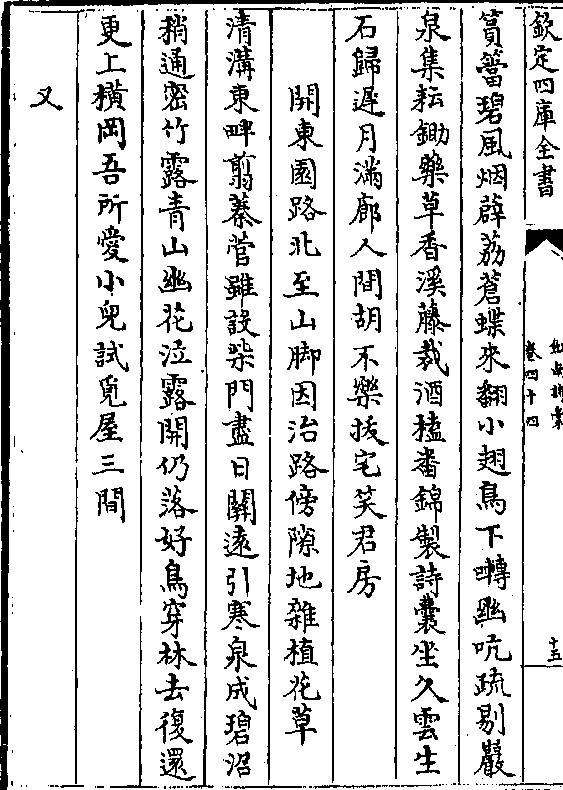 欽定四庫全書
劍南詩藁
卷四十四
十五
篔簹碧風烟薜荔蒼蝶來翻小翅鳥下囀幽吭疏剔巖
泉集耘鋤藥草香溪藤裁酒榼番錦製詩囊坐久雲生
石歸遲月滿廊人間胡不樂拔宅笑君房
開東園路北至山脚因治路傍隙地雜植花草
清溝東畔翦蓁菅雖設柴門盡日關遠引寒泉成碧沼
稍通密竹露青山幽花泣露開仍落好鳥穿林去復還
更上橫岡吾所愛小兒試覓屋三間
又